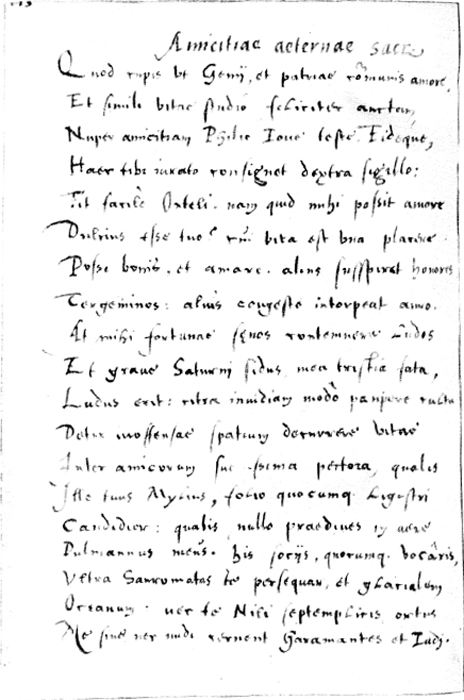 Amicitiae aeternae sacr
Quod cupis vt Genij, et patriae cōmunis amore,
Et simili vitae studio feliciter auctam,
Nuper amicitiam Philie Ioue teste Fideque,
Haec tibi iurato consignet dextra sigillo:
Fit facile Orteli. nam quid mihi possit amore
Dulcius esse tuo? cui vita est vna placere
Posse bonis, et amare. alius suspiret honores
Tergeminos: alius congesto intorpeat auro.
At mihi fortunae saeuos contemnere ludos
Et graue Saturni sidus, mea tristia fata,
Ludus erit: citra inuidiam modo panpere
Detur inoffensae spatium decurrere vitae
Inter amicorum pectora, qualis
Ille tuus Mylius, folio quocumq. Ligustri
Candidior: qualis nullo praediues in aere
Pulmannus meus. his socijs, quocumq. vocâris,
Vltra Sauromatas te persequar, et glacialem
Oceanum. nec te Nili septemplicis ortus
Me sine nec nudi cernent Garamantes et Indi.